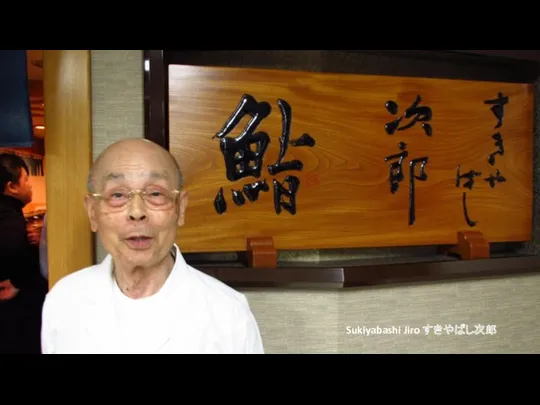 すきやばし
次郎
鮨
Sukiyabashi Jiro すきやばし次郎